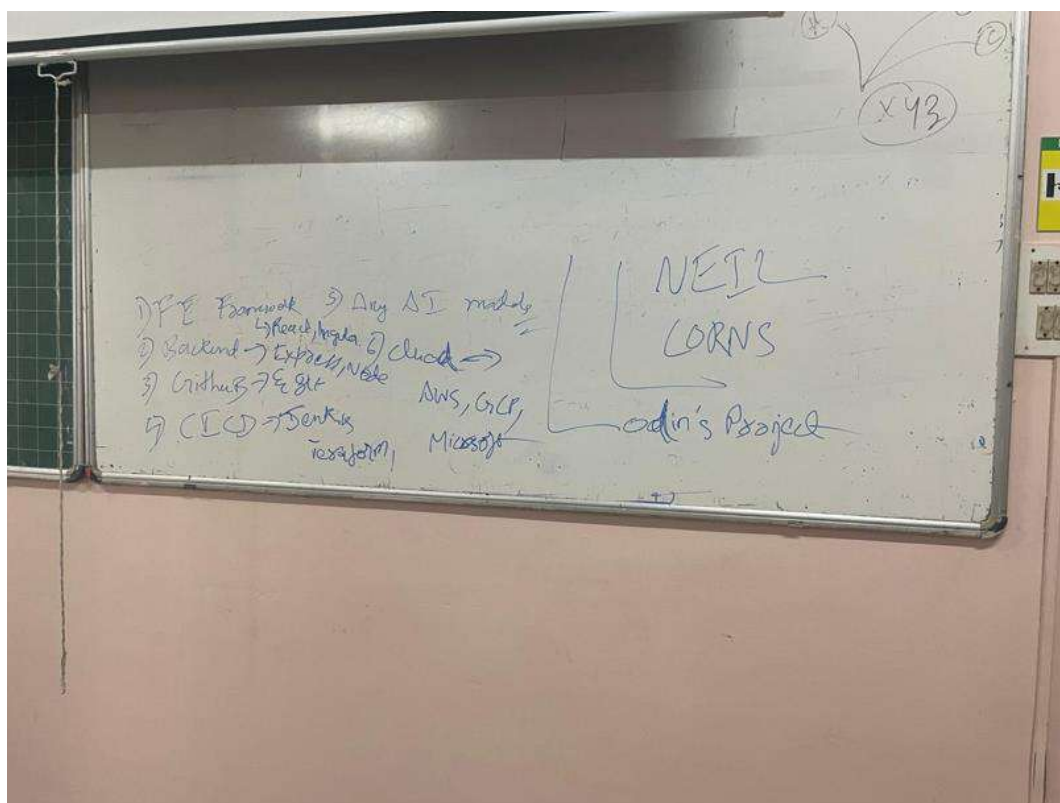 C
XYZ
1) FE Framework
↳ React, Angular
2) Backend → Express, Node
3) GitHub → & git
4) CICD → Jenkins
Terraform,
5) Any AI models
6) Cloud →
AWS, GCP,
Microsoft
NEIL
CORNS
odin's Project
H